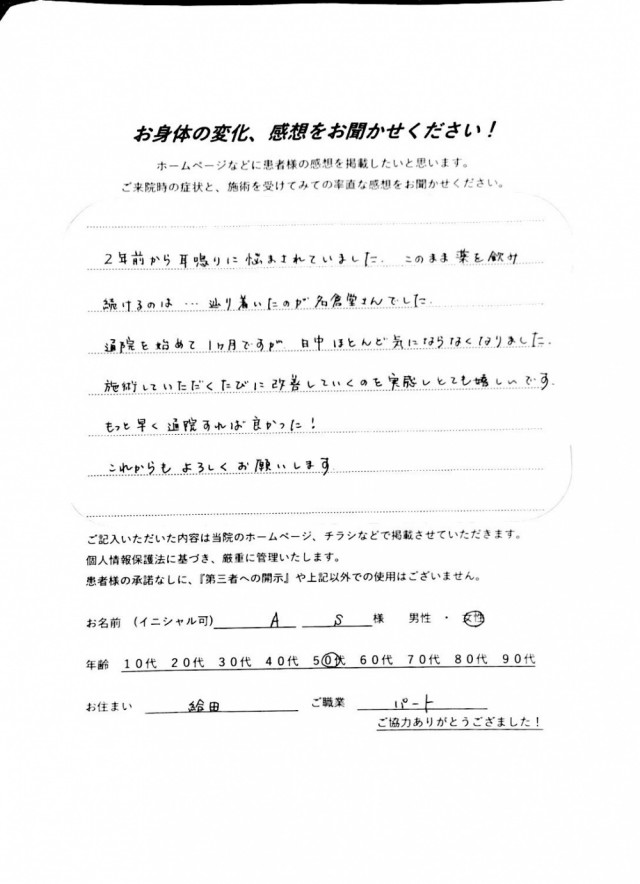 お身体の変化、感想をお聞かせください！
ホームページなどに患者様の感想を掲載したいと思います。
ご来院時の症状と、施術を受けてみての率直な感想をお聞かせください。
2年前から耳鳴りに悩まされていました. このまま薬を飲み
続けるのは … 辿り着いたのが名倉堂さんでした.
通院を始めて1ヶ月ですが 日中ほとんど気にならなくなりました.
施術していただくたびに改善していくのを実感しとても嬉しいです.
もっと早く通院すれば良かった！
これからもよろしくお願いします
ご記入いただいた内容は当院のホームページ、チラシなどで掲載させていただきます。
個人情報保護法に基づき、厳重に管理いたします。
患者様の承諾なしに、『第三者への開示』や上記以外での使用はございません。
お名前 (イニシャル可) A S 様 男性 ・ 女性
年齢 10代 20代 30代 40代 50代 60代 70代 80代 90代
お住まい 給田 ご職業 パート
ご協力ありがとうござました！